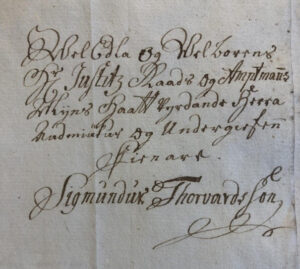 WelEdla og Welborens
Hr Justitz Raads og Amptmanns
Myns Haatt Vyrdande Herra
Audmiukur og Undergiefen
Þienare.
Sigmundur Thorvardsson